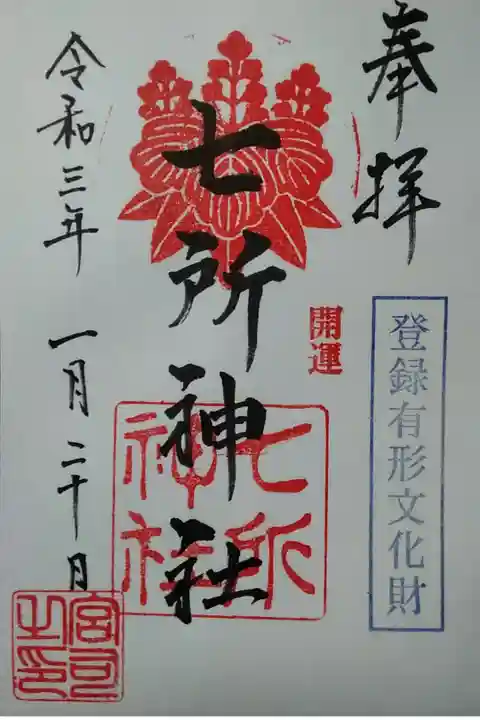 奉拝
登録有形文化財
開運
七所神社
七所神社
令和三年 一月二十日
宮司之印